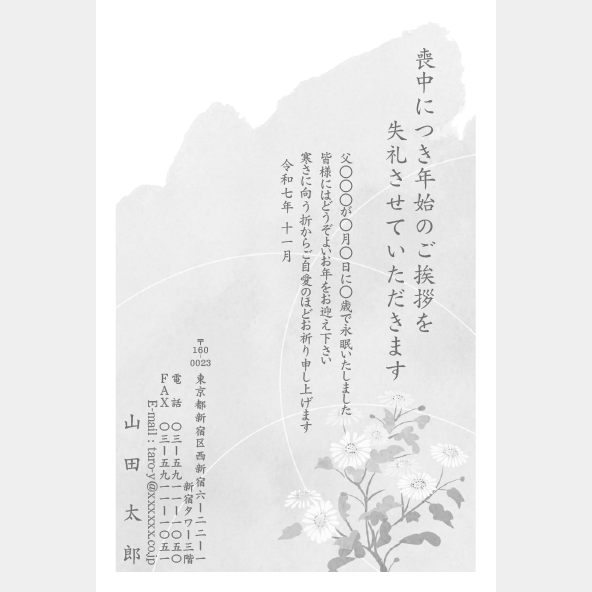 喪中につき年始のご挨拶を
失礼させていただきます
父〇〇〇が〇月〇日に〇歳で永眠いたしました
皆様にはどうぞよいお年をお迎え下さい
寒さに向う折からご自愛のほどお祈り申し上げます
令和七年 十一月
〒160-0023
東京都新宿区西新宿六ー二二ー一
新宿タワー三階
電話 〇三ー五九一一ー一〇五〇
FAX 〇三ー五九一一ー一〇五一
E-mail : taro-y@xxxxxx.co.jp
山田太郎